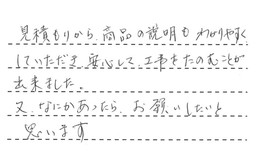 見積もりから、商品の説明も わかりやすく
していただき、安心して、工事をたのむことが
出来ました。
又、なにかあったら、お願いしたいと
思います